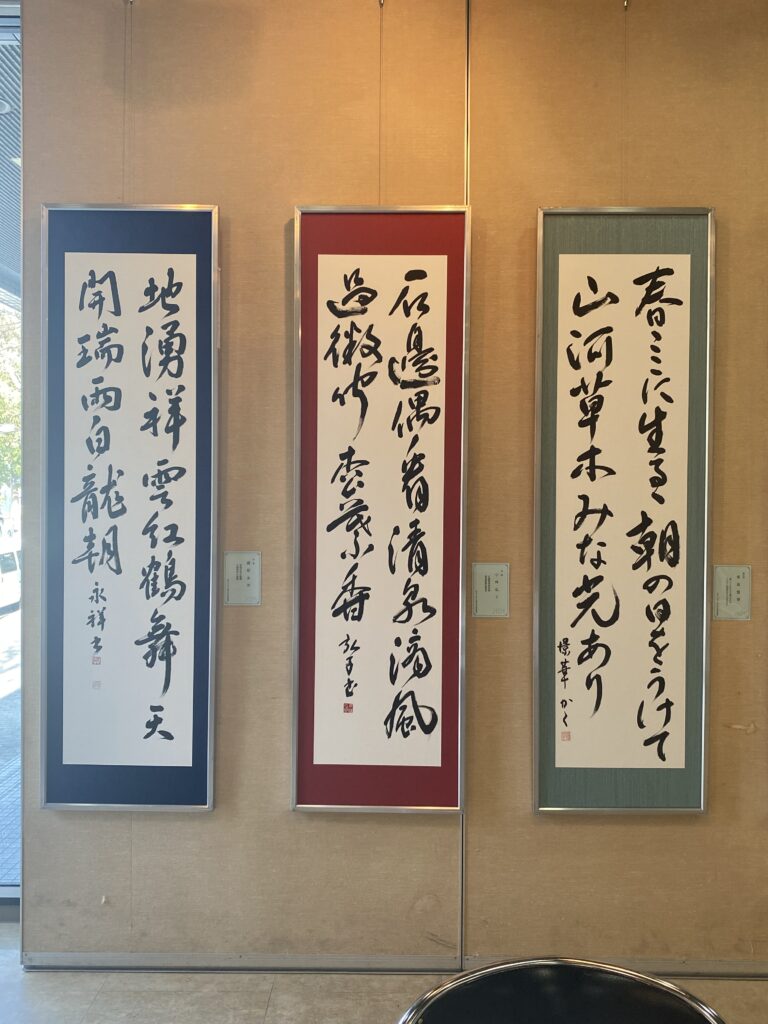 春こゝに生るゝ朝の日をうけて
山河草木みな光あり
華 かく
石邊偶看清泉滴風
過微聞松葉香
弘子書
地湧祥雲紅鶴舞天
開瑞雨白龍朝
永祥書